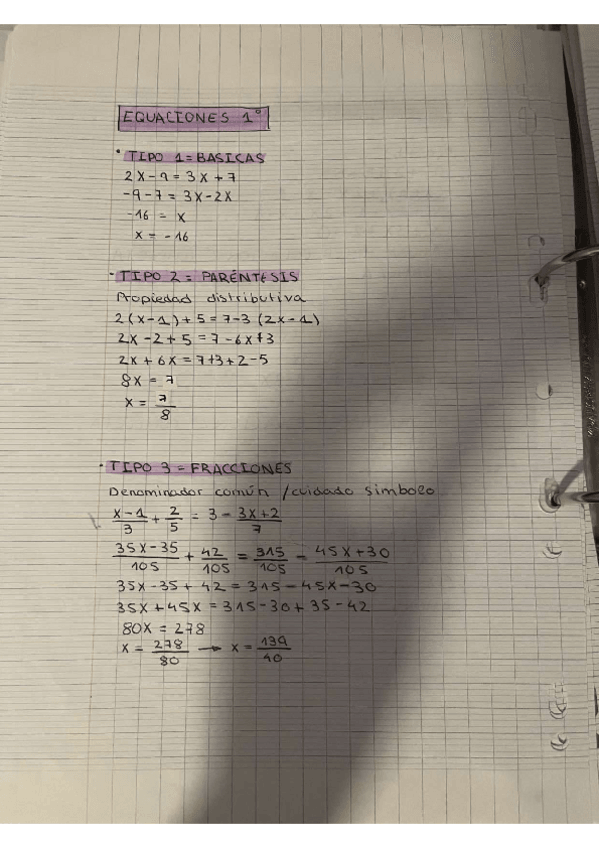 EQUACIONES 1º
· TIPO 1 = BASICAS
2x - 9 = 3x + 7
-9 - 7 = 3x - 2x
-16 = x
x = -16
· TIPO 2 = PARÉNTESIS
Propiedad distributiva
2(x-1) + 5 = 7 - 3(2x-1)
2x - 2 + 5 = 7 - 6x + 3
2x + 6x = 7 + 3 + 2 - 5
8x = 7
x = 7/8
· TIPO 3 = FRACCIONES
Denominador común / cuidado simbolo
(x-1)/3 + 2/5 = 3 - (3x+2)/7
(35x-35)/105 + 42/105 = 315/105 - (45x+30)/105
35x - 35 + 42 = 315 - 45x - 30
35x + 45x = 315 - 30 + 35 - 42
80x = 278
x = 278/80 → x = 139/40